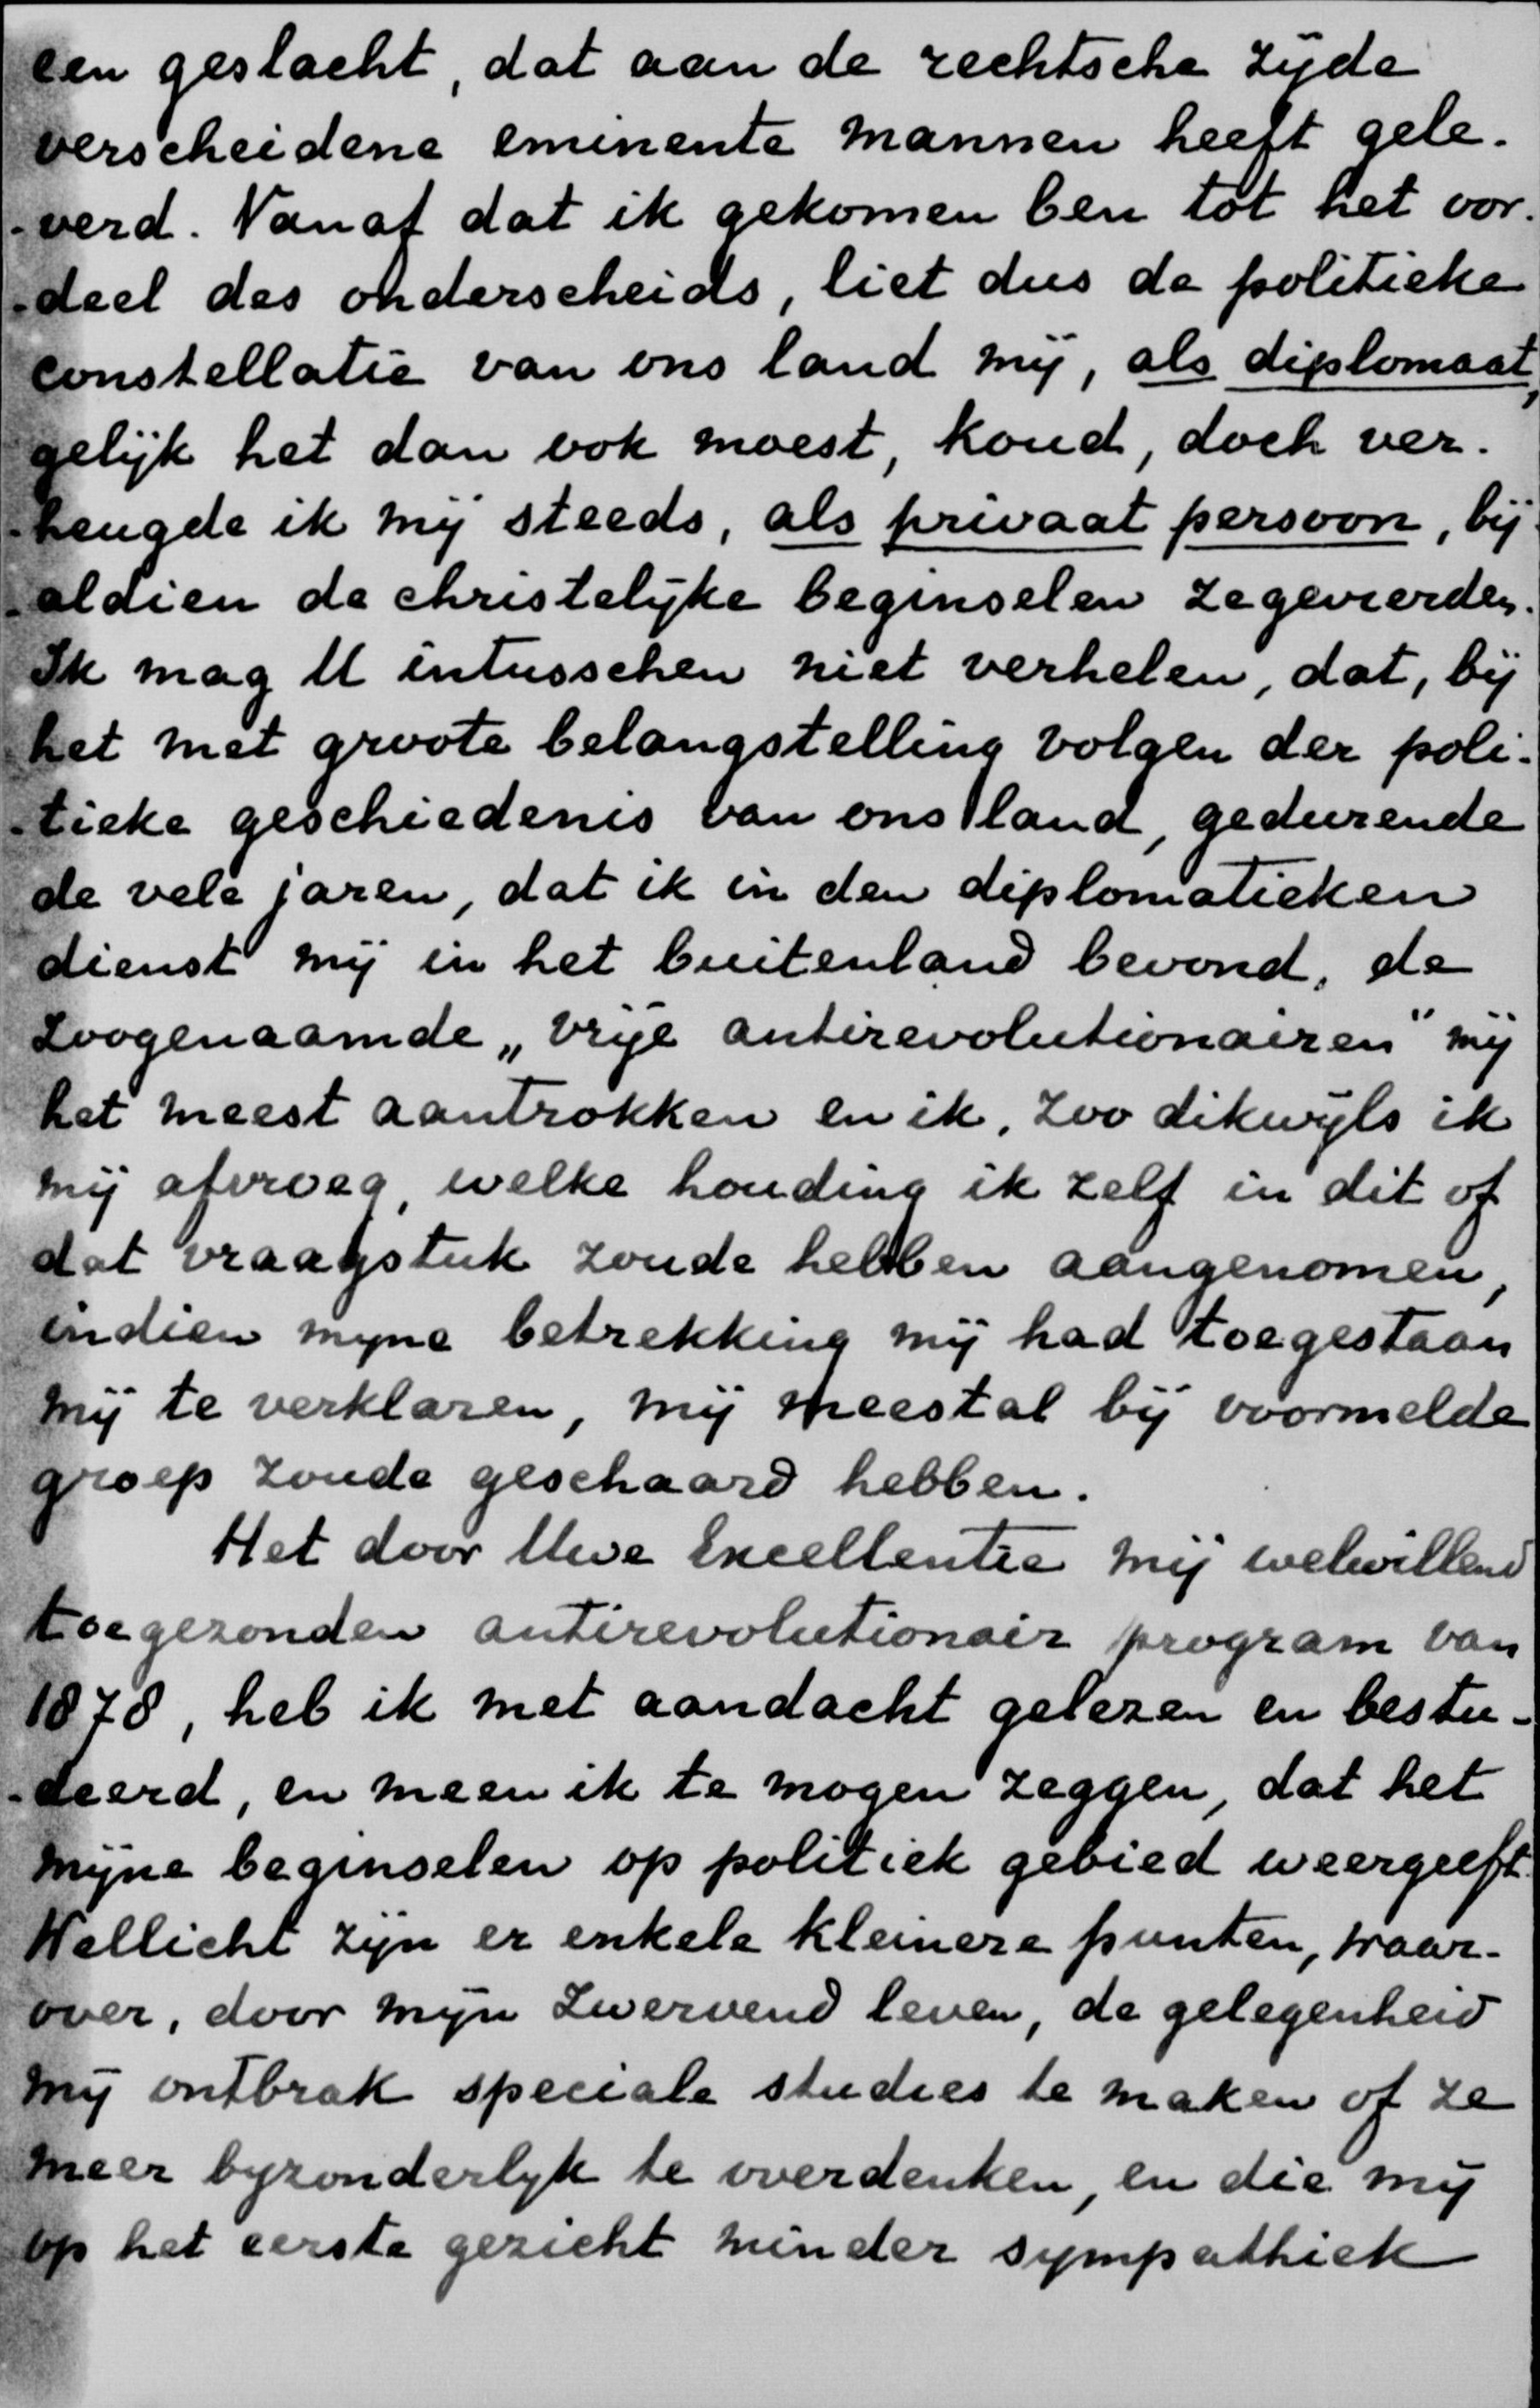 een geslacht, dat aan de rechtsche zijde
verscheidene eminente mannen heeft gele-
-verd. Vanaf dat ik gekomen ben tot het oor-
-deel des onderscheids, liet dus de politieke
constellatie van ons land mij, als diplomaat,
gelijk het dan ook moest, koud, doch ver-
-heugde ik mij steeds, als privaat persoon, bij
-aldien de christelijke beginselen zegevierden.
Ik mag U intusschen niet verhelen, dat, bij
het met groote belangstelling volgen der poli-
-tieke geschiedenis van ons land, gedurende
de vele jaren, dat ik in den diplomatieken
dienst mij in het buitenland bevond, de
zoogenaamde „vrije antirevolutionairen" mij
het meest aantrokken en ik, zoo dikwijls ik
mij afvroeg, welke houding ik zelf in dit of
dat vraagstuk zoude hebben aangenomen,
indien mijne betrekking mij had toegestaan
mij te verklaren, mij meestal bij voormelde
groep zoude geschaard hebben.
Het door Uwe Excellentie mij welwillend
toegezonden antirevolutionair program van
1878, heb ik met aandacht gelezen en bestu-
-deerd, en meen ik te mogen zeggen, dat het
mijne beginselen op politiek gebied weergeeft.
Wellicht zijn er enkele kleinere punten, waar-
over, door mijn zwervend leven, de gelegenheid
mij ontbrak speciale studies te maken of ze
meer byzonderlyk te overdenken, en die mij
op het eerste gezicht minder sympathiek